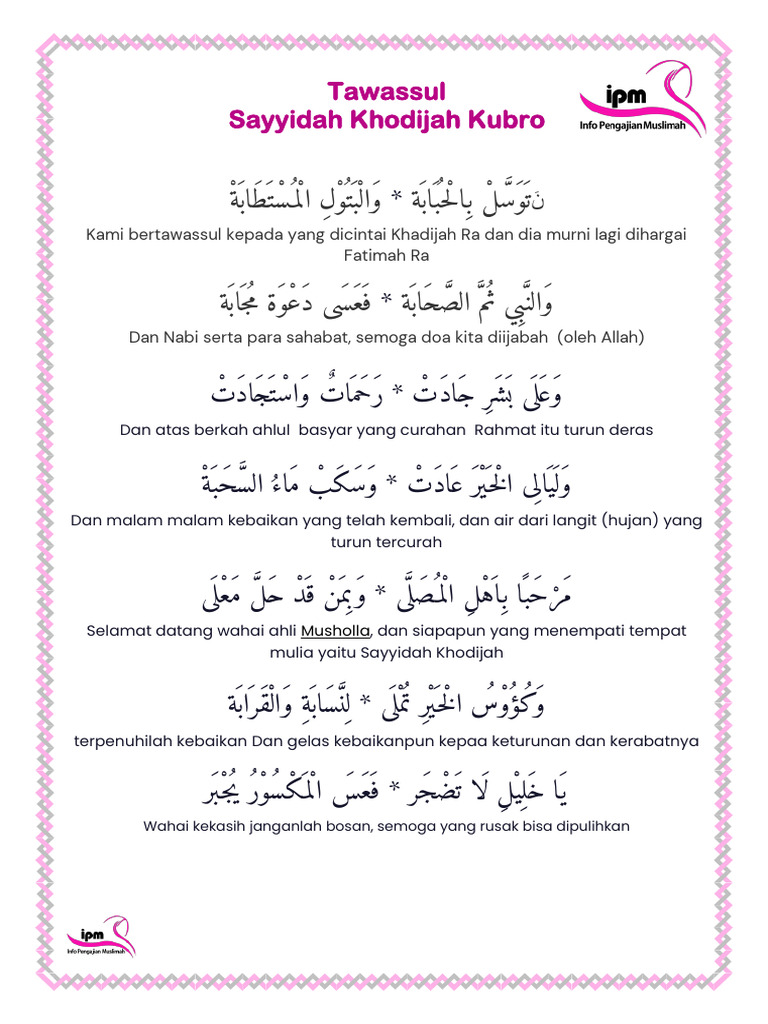 Tawassul
Sayyidah Khodijah Kubro
ipm
Info Pengajian Muslimah
نَتَوَسَّلْ بِالْحُبَابَة * وَالْبَتُوْلِ الْمُسْتَطَابَةْ
Kami bertawassul kepada yang dicintai Khadijah Ra dan dia murni lagi dihargai
Fatimah Ra
وَالنَّبِيِ ثُمَّ الصَّحَابَة * فَعَسَى دَعْوَة مُجَابَة
Dan Nabi serta para sahabat, semoga doa kita diijabah (oleh Allah)
وَعَلَى بَشَرِ جَادَتْ * رَحَمَاتٌ وَاسْتَجَادَتْ
Dan atas berkah ahlul basyar yang curahan Rahmat itu turun deras
وَلَيَالِى الْخَيْرَ عَادَتْ * وَسَكَبْ مَاءُ السَّحَبَةْ
Dan malam malam kebaikan yang telah kembali, dan air dari langit (hujan) yang
turun tercurah
مَرْحَبًا بِاَهْلِ الْمُصَلَّى * وَبِمَنْ قَدْ حَلَّ مَعْلَى
Selamat datang wahai ahli Musholla, dan siapapun yang menempati tempat
mulia yaitu Sayyidah Khodijah
وَكُؤُوْسُ الْخَيْرِ تُمْلَى * لِنَّسَابَةِ وَالْقَرَابَة
terpenuhilah kebaikan Dan gelas kebaikanpun kepaa keturunan dan kerabatnya
يَا خَلِيْلِ لَا تَضْجَر * فَعَسَ الْمَكْسُوْرُ يُجْبَر
Wahai kekasih janganlah bosan, semoga yang rusak bisa dipulihkan
ipm
Info Pengajian Muslimah